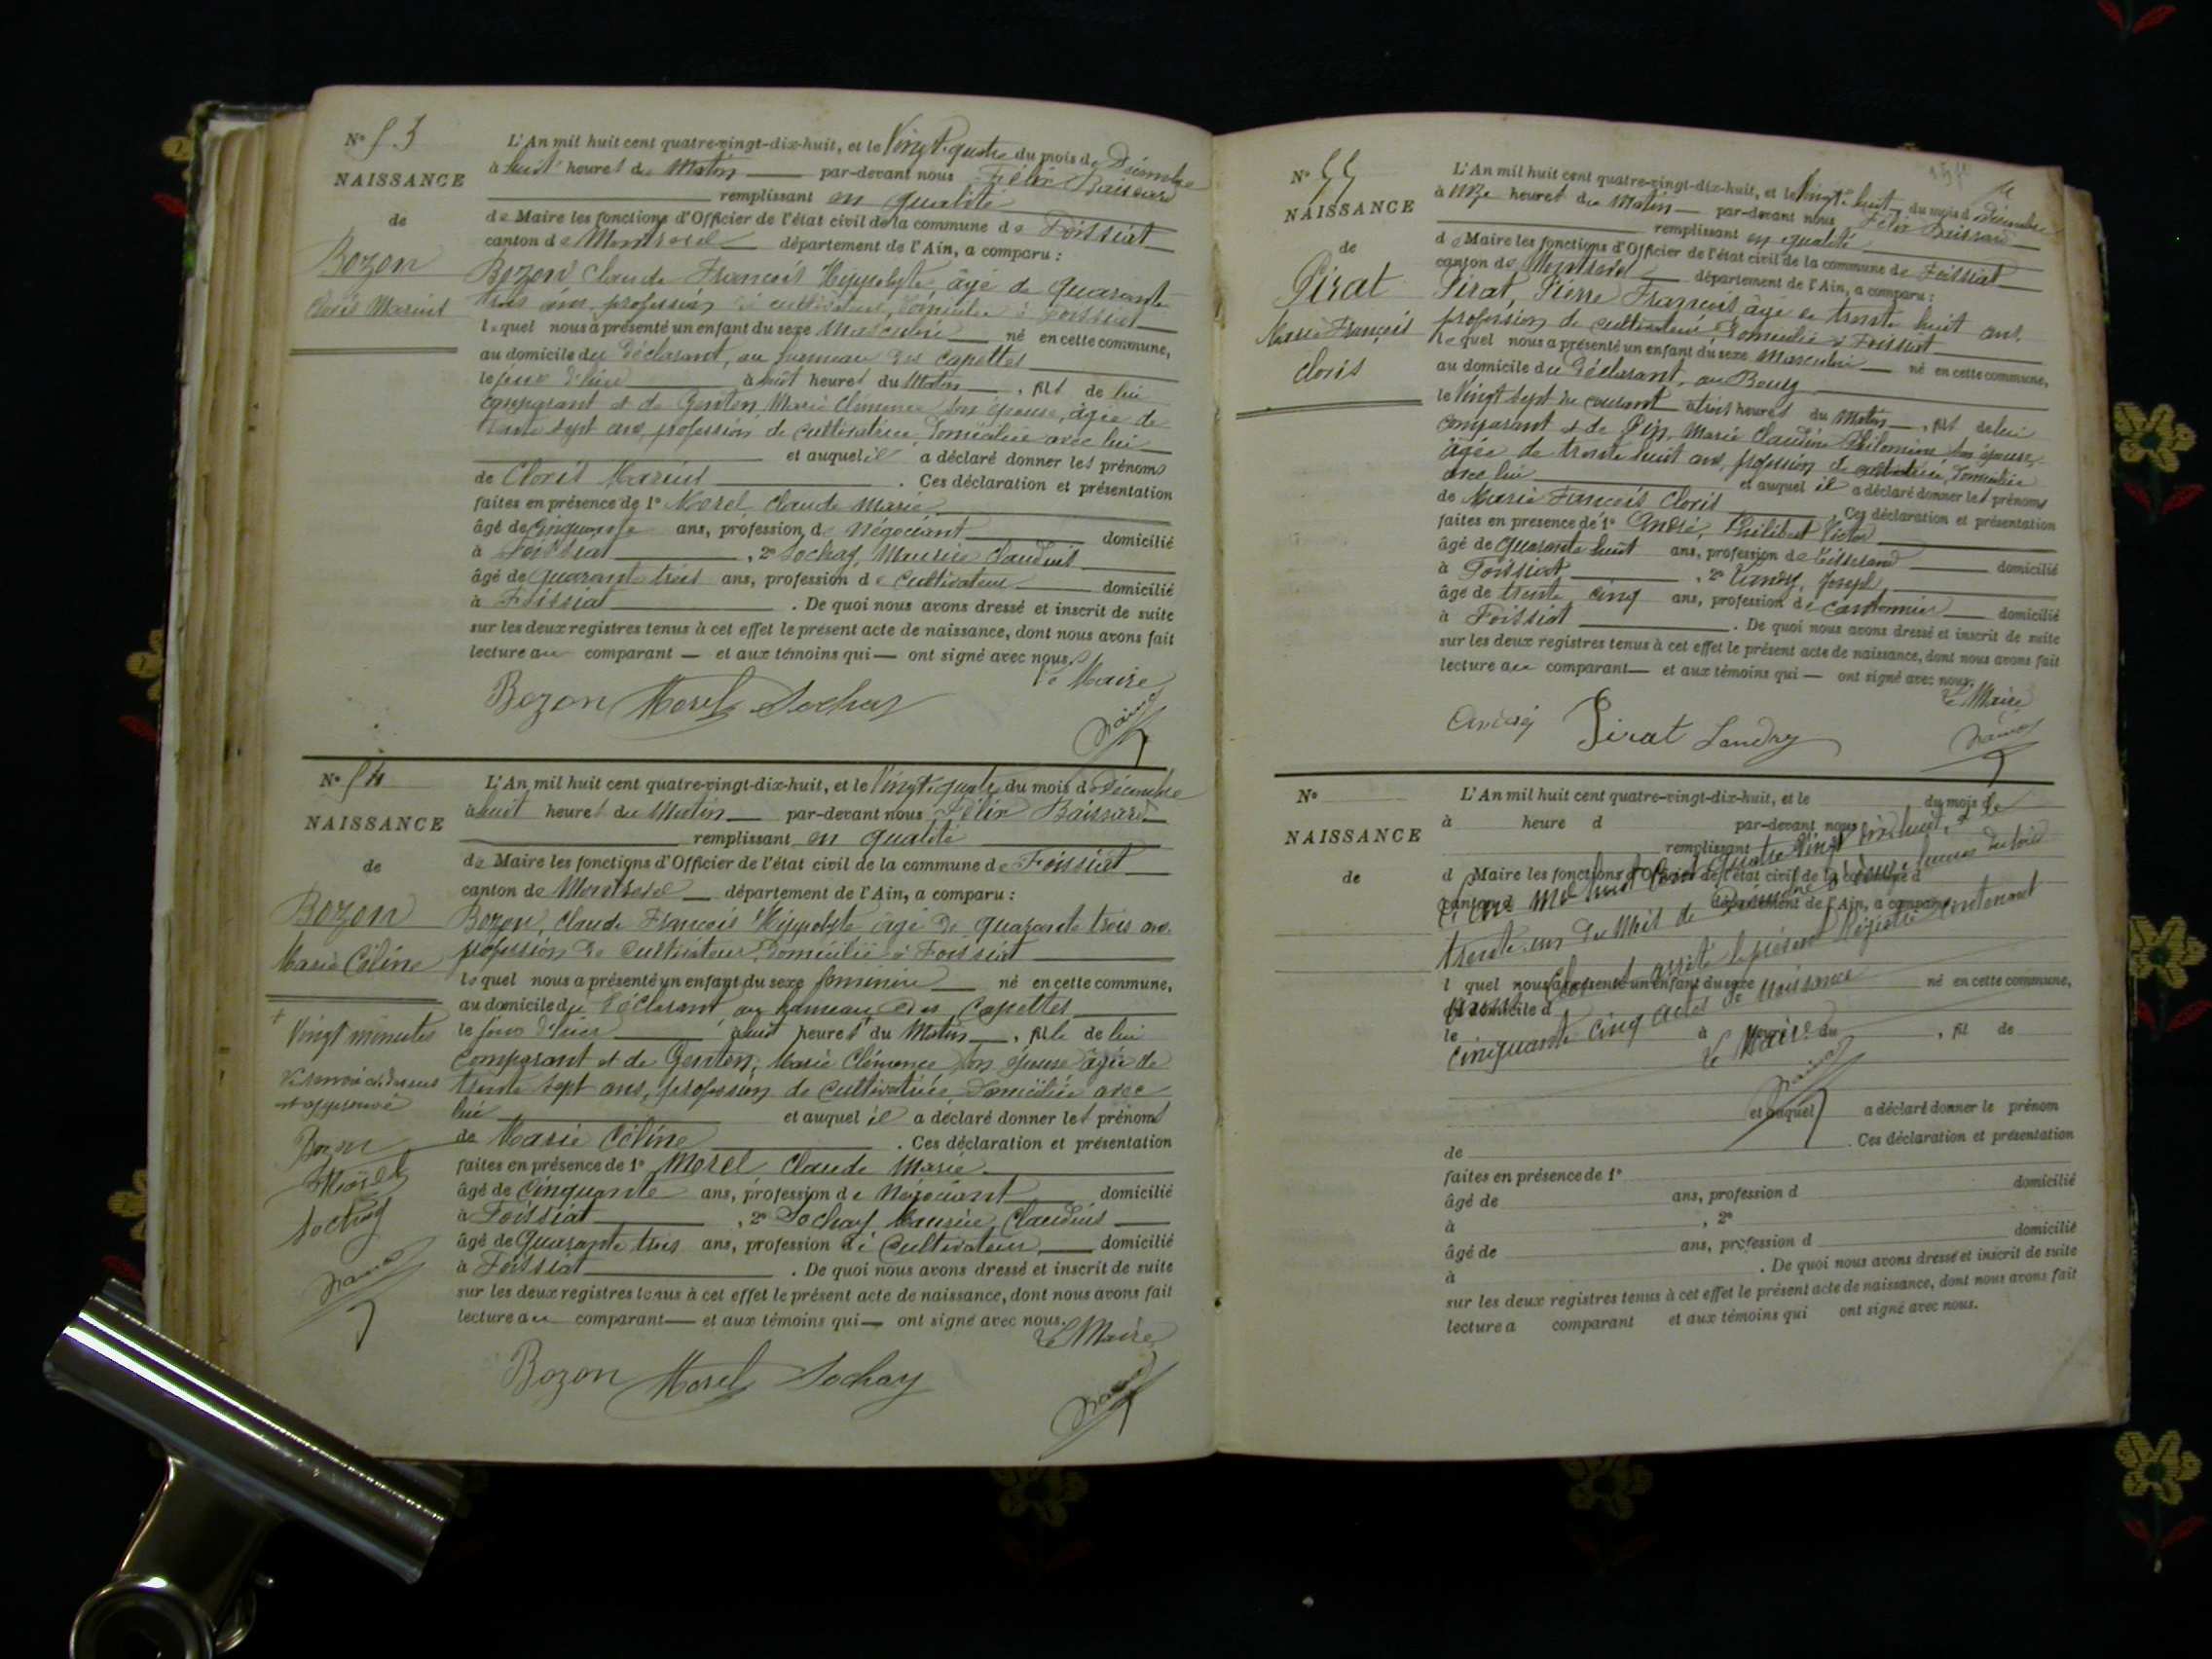 N° 53
NAISSANCE
de
Bozon
Cloris Marius
L'An mil huit cent quatre-vingt-dix-huit, et le Vingt quatre du mois de Décembre
à huit heures du Matin par-devant nous Félix Baissard
remplissant en qualité
de Maire les fonctions d'Officier de l'état civil de la commune de Foissiat
canton de Montrevel département de l'Ain, a comparu :
Bozon Claude François Hyppolyte âgé de quarante
trois ans, profession de cultivateur, domicilié à Foissiat
lequel nous a présenté un enfant du sexe Masculin né en cette commune,
au domicile du déclarant, au hameau des Capettes
le jour d'hier à huit heures du Matin, fils de lui
comparant et de Genton, Marie Clémence son épouse, âgée de
trente sept ans, profession de cultivatrice, domiciliée avec lui
et auquel il a déclaré donner les prénoms
de Cloris Marius. Ces déclaration et présentation
faites en présence de 1° Morel Claude Marie
âgé de cinquante ans, profession de Négociant domicilié
à Foissiat, 2° Sochay, Maurice Claudius
âgé de quarante trois ans, profession de cultivateur domicilié
à Foissiat. De quoi nous avons dressé et inscrit de suite
sur les deux registres tenus à cet effet le présent acte de naissance, dont nous avons fait
lecture au comparant et aux témoins qui ont signé avec nous.
Le Maire
Bozon Morel Sochay
N° 54
NAISSANCE
de
Bozon
Marie Céline
+
Vingt minutes
Le renvoi ci-dessus
est approuvé
Bozon
Morel
Sochay
L'An mil huit cent quatre-vingt-dix-huit, et le Vingt quatre du mois de Décembre
à huit heures du Matin par-devant nous Félix Baissard
remplissant en qualité
de Maire les fonctions d'Officier de l'état civil de la commune de Foissiat
canton de Montrevel département de l'Ain, a comparu :
Bozon, Claude François Hyppolyte âgé de quarante trois ans
profession de cultivateur, domicilié à Foissiat
lequel nous a présenté un enfant du sexe féminin né en cette commune,
au domicile du déclarant au hameau des Capettes
le jour d'hier à huit heures + du Matin, fille de lui
comparant et de Genton, Marie Clémence son épouse âgée de
trente sept ans, profession de cultivatrice domiciliée avec
lui et auquel il a déclaré donner les prénoms
de Marie Céline. Ces déclaration et présentation
faites en présence de 1° Morel Claude Marie
âgé de cinquante ans, profession de Négociant domicilié
à Foissiat, 2° Sochay Maurice Claudius
âgé de quarante trois ans, profession de cultivateur domicilié
à Foissiat. De quoi nous avons dressé et inscrit de suite
sur les deux registres tenus à cet effet le présent acte de naissance, dont nous avons fait
lecture au comparant et aux témoins qui ont signé avec nous.
Le Maire
Bozon Morel Sochay
N° 55
NAISSANCE
de
Pirat
Marie François
Cloris
L'An mil huit cent quatre-vingt-dix-huit, et le Vingt huit du mois de Décembre
à onze heures du Matin par-devant nous Félix Baissard
remplissant en qualité
de Maire les fonctions d'Officier de l'état civil de la commune de Foissiat
canton de Montrevel département de l'Ain, a comparu :
Pirat, Pierre François âgé de trente huit ans,
profession de cultivateur domicilié à Foissiat
lequel nous a présenté un enfant du sexe Masculin né en cette commune,
au domicile du déclarant, au Bourg
le Vingt sept du courant à trois heures du Matin, fils de lui
comparant et de Pin, Marie Claudine Philomène son épouse,
âgée de trente huit ans, profession de cultivatrice, domiciliée
avec lui et auquel il a déclaré donner les prénoms
de Marie François Cloris. Ces déclaration et présentation
faites en présence de 1° André, Philibert Victor
âgé de quarante huit ans, profession de tisserand domicilié
à Foissiat, 2° Landry, Joseph
âgé de trente cinq ans, profession de cantonnier domicilié
à Foissiat. De quoi nous avons dressé et inscrit de suite
sur les deux registres tenus à cet effet le présent acte de naissance, dont nous avons fait
lecture au comparant et aux témoins qui ont signé avec nous.
Le Maire
André Pirat Landry
N°
NAISSANCE
de
L'An mil huit cent quatre-vingt-dix-huit, et le du mois de
à heure d par-devant nous
remplissant
d Maire les fonctions d'Officier de l'état civil de la commune d
canton d département de l'Ain, a comparu :
L'an mil huit cent quatre vingt dix huit, et le
trente un du mois de Décembre à heures du soir
nous arrêté le présent Registre contenant
cinquante cinq actes de naissance
Le Maire
l quel nous a présenté un enfant du sexe né en cette commune,
au domicile d
le à heure du, fil de
et auquel a déclaré donner le prénom
de . Ces déclaration et présentation
faites en présence de 1°
âgé de ans, profession d domicilié
à , 2°
âgé de ans, profession d domicilié
à . De quoi nous avons dressé et inscrit de suite
sur les deux registres tenus à cet effet le présent acte de naissance, dont nous avons fait
lecture a comparant et aux témoins qui ont signé avec nous.